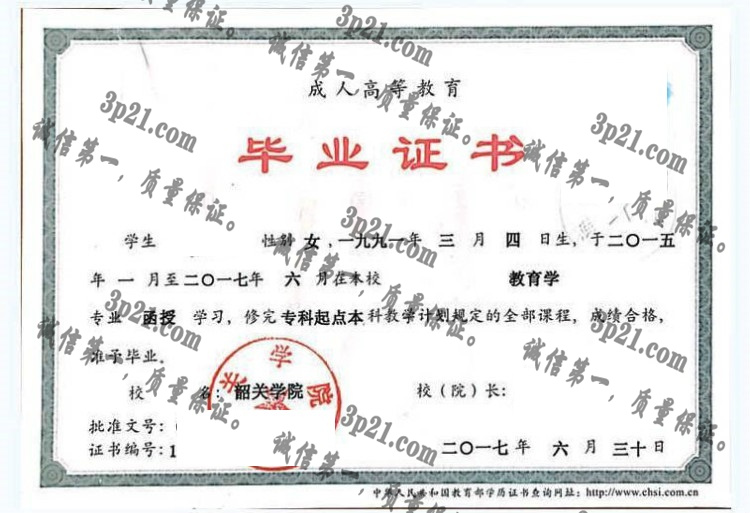 成人高等教育
毕业证书
学生 性别 女,一九九一年 三 月 四 日生,于二〇一五
年 一 月至二〇一七年 六 月在本校 教育学
专业 函授 学习,修完专科起点本科教学计划规定的全部课程,成绩合格,
准予毕业。
校 名:韶关学院 校(院)长:
批准文号:
证书编号:1
二〇一七年 六 月 三十日
中华人民共和国教育部学历证书查询网址:http://www.chsi.com.cn
关 学 院
3p21.com
诚信第一,质量保证。
3p21.com
诚信第一,质量保证。
3p21.com
诚信第一,质量保证。
3p21.com
诚信第一,质量保证。
3p21.com
诚信第一,质量保证。
3p21.com
诚信第一,质量保证。
3p21.com
诚信第一,质量保证。
3p21.com
诚信第一,质量保证。